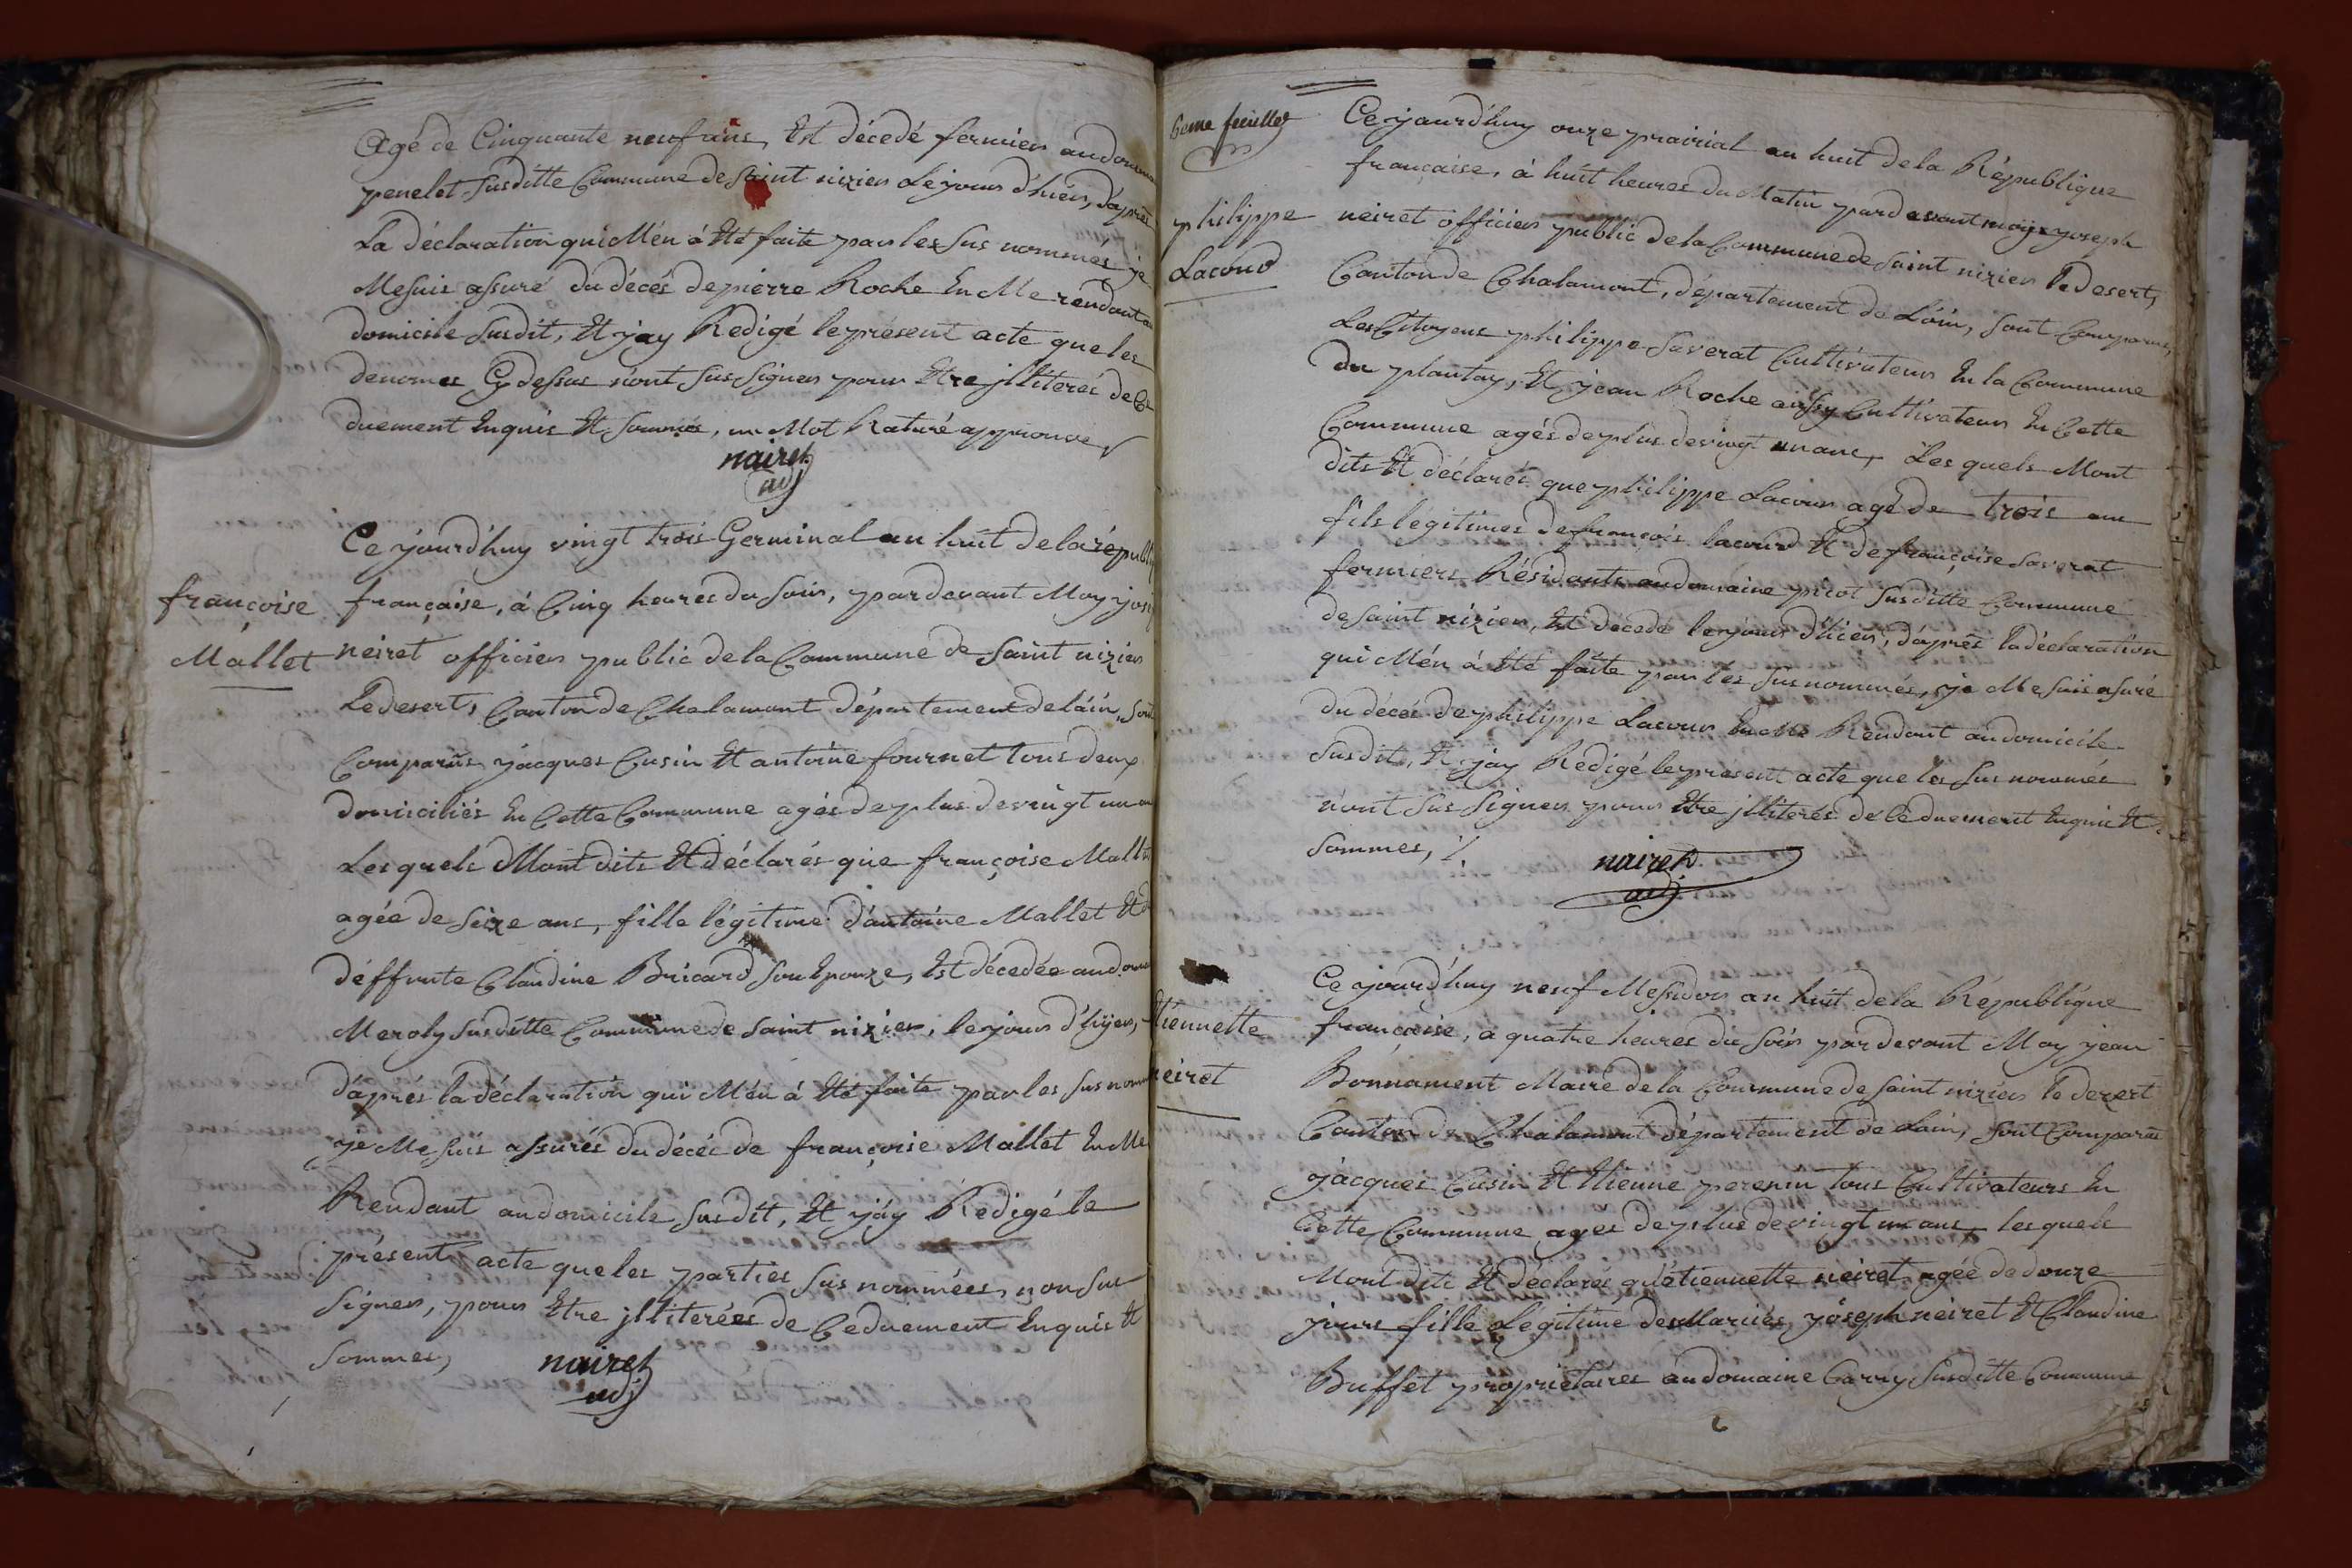 Agé de Cinquante neuf ans, Est décedé fermier au
penelet Susditte Commune de Saint nizier Le jour d'hiér, d'après
La déclaration qui M'én á Eté faite par les sus nommés je
Me suis assuré du décés de pierre Roche En Me rendant
domicile Susdit, Et j'ay Redigé le présent acte que les
denomes Cy dessus n'ont Sus Signer pour Etre jlliterés de Ce
duement Enquis Et Sommés, un Mot Raturé approuvé
nairet
adj
Ce jourd'huy vingt trois Germinal an huit de la
françoise
Mallet
française, á Cinq heures du Soir, par devant Moy
neiret officier public de la Commune de Saint nizier
Le desert, Canton de Chalamont département de láin, Sont
Comparûs jacques Cusin Et antoine fournet tous deux
domiciliés En Cette Commune agés de plus de vingt un
Les quels M'ont dits Et déclarés que françoise Mallet
agée de Seize ans, fille légitime d'antoine Mallet Et
déffunte Claudine Bricard Son Epouze, Est décedée au
Meroly Susditte Commune de Saint nizier, le jour d'hijer,
d'aprés la déclaration qui M'én á Eté faite par les sus
je Me Suis assurés du décéc de françoise Mallet En Me
Rendant au domicile Susdit, Et j'áy Redigé le
présent acte que les parties Sus nommées, non Sus
Signer, pour Etre jlliterées de Ce duement Enquis Et
Sommes,
nairet
adj
6eme feuillet
Ce jourd'huy onze prairial an huit de la République
française, á huit heures du Matin par devant moy joseph
philippe
Lacour
neiret officier public de la Commune de Saint nizier le desert,
Canton de Chalamont, département de L'ain, Sont Comparus,
Les Citoyens philippe Saverat Cultivateur En la Commune
du plantay, Et jean Roche aussy Cultivateur En Cette
Commune agés de plus de vingt un ans, Les quels M'ont
dits Et déclarés que philippe Lacour agé de trois ans
fils légitimes de françois lacour Et de françoise Saverat
fermiers Résidants au domaine picot Susditte Commune
de Saint nizier, Est décedé le jour d'hier, d'après la déclaration
qui M'én á Eté faite par les sus nommés, je Me suis asuré
du décés de philippe Lacour En Me Rendant au domicile
Susdit, Et j'ay Redigé le present acte que les sus nommés
n'ont Sus Signer pour Etre jlliterés de Ce duement Enquis Et
Sommes, ./.
nairet
adj
Ce jourd'huy neuf Messidor an huit de la République
Etiennette
neiret
française, a quatre heures du Soir par devant Moy jean
Bonnament Maire de la Commune de Saint nizier le dezert
Canton de Chalamont département de Lain, Sont Comparûs
jacques Cusin Et Etienne perenin tous Cultivateurs En
Cette Commune ages de plus de vingt un ans, les quels
Mont dits Et déclarés qu'étiennette neiret agée de douze
jours fille Légitime des Mariés joseph neiret Et Claudine
Buffet propriétaires au domaine Carry Susditte Commune